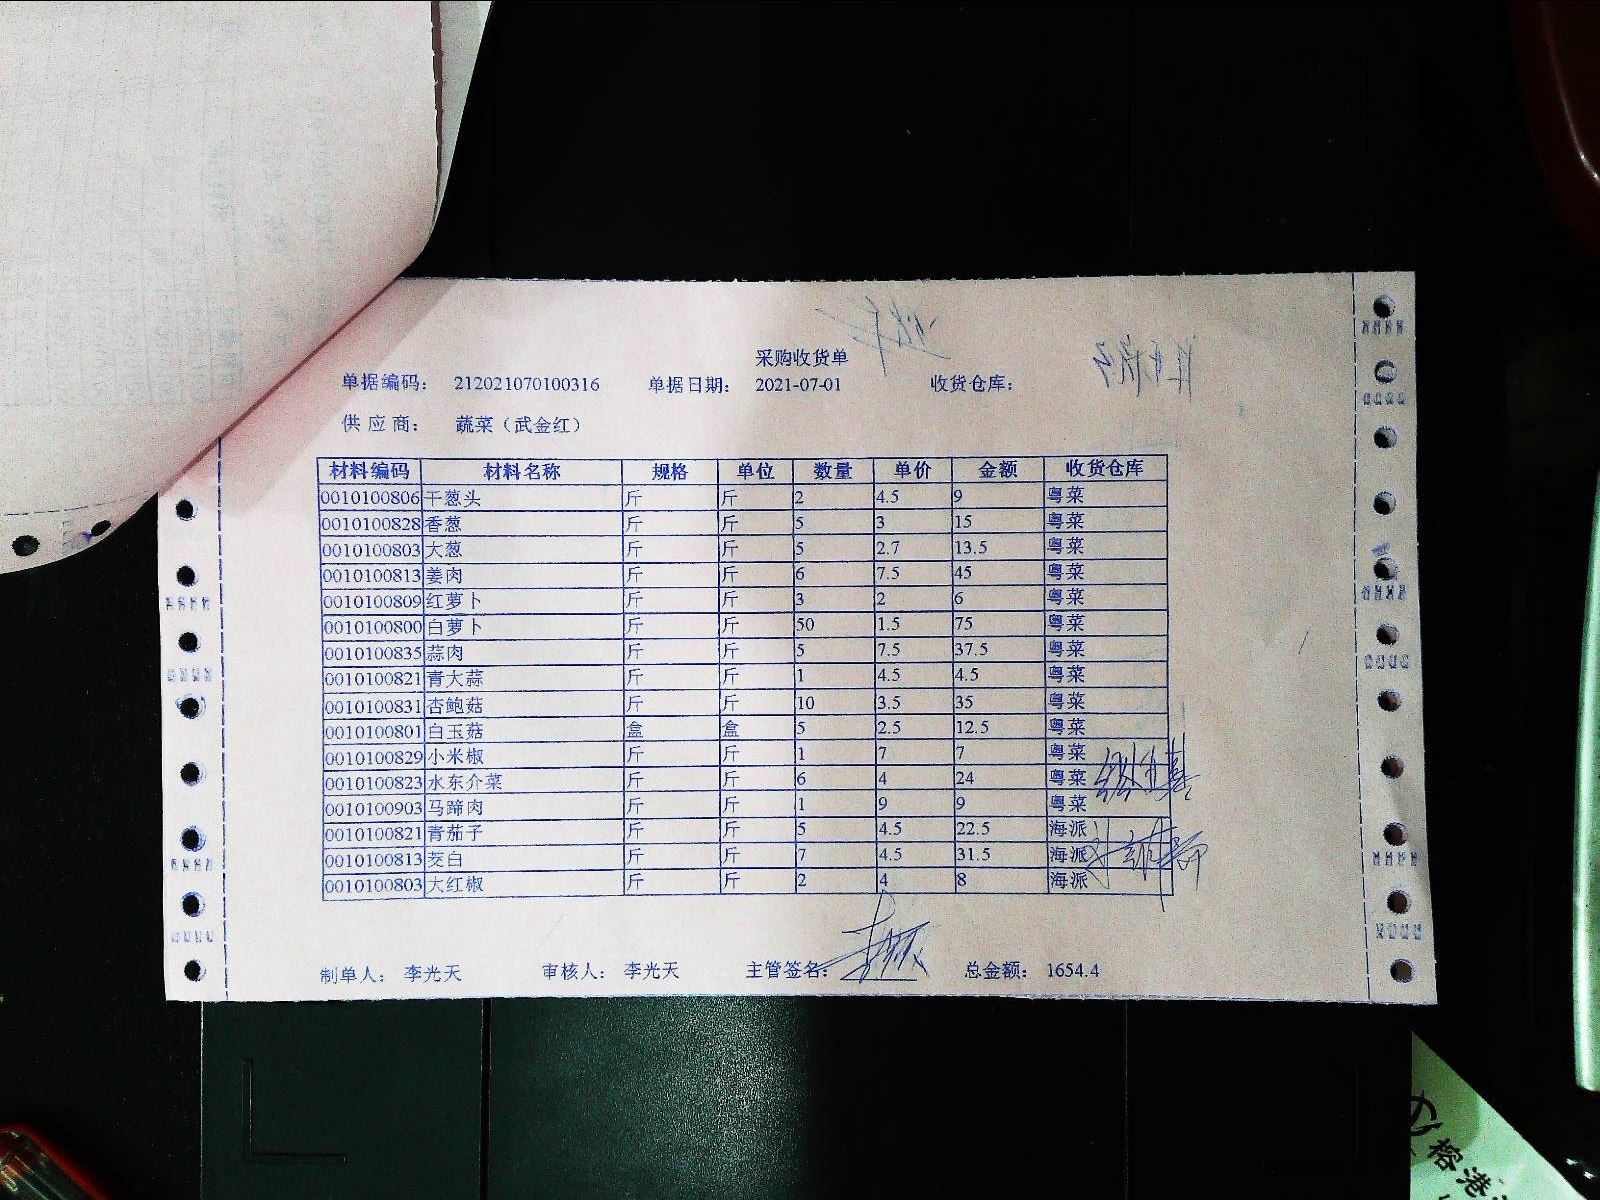 采购收货单
单据编码： 212021070100316 单据日期： 2021-07-01 收货仓库：
供 应 商： 蔬菜（武金红）
材料编码 材料名称 规格 单位 数量 单价 金额 收货仓库
0010100806 干葱头 斤 斤 2 4.5 9 粤菜
0010100828 香葱 斤 斤 5 3 15 粤菜
0010100803 大葱 斤 斤 5 2.7 13.5 粤菜
0010100813 姜肉 斤 斤 6 7.5 45 粤菜
0010100809 红萝卜 斤 斤 3 2 6 粤菜
0010100800 白萝卜 斤 斤 50 1.5 75 粤菜
0010100835 蒜肉 斤 斤 5 7.5 37.5 粤菜
0010100821 青大蒜 斤 斤 1 4.5 4.5 粤菜
0010100831 杏鲍菇 斤 斤 10 3.5 35 粤菜
0010100801 白玉菇 盒 盒 5 2.5 12.5 粤菜
0010100829 小米椒 斤 斤 1 7 7 粤菜
0010100823 水东介菜 斤 斤 6 4 24 粤菜
0010100903 马蹄肉 斤 斤 1 9 9 粤菜
0010100821 青茄子 斤 斤 5 4.5 22.5 海派
0010100813 茭白 斤 斤 7 4.5 31.5 海派
0010100803 大红椒 斤 斤 2 4 8 海派
制单人： 李光天 审核人： 李光天 主管签名： 总金额： 1654.4
榕港